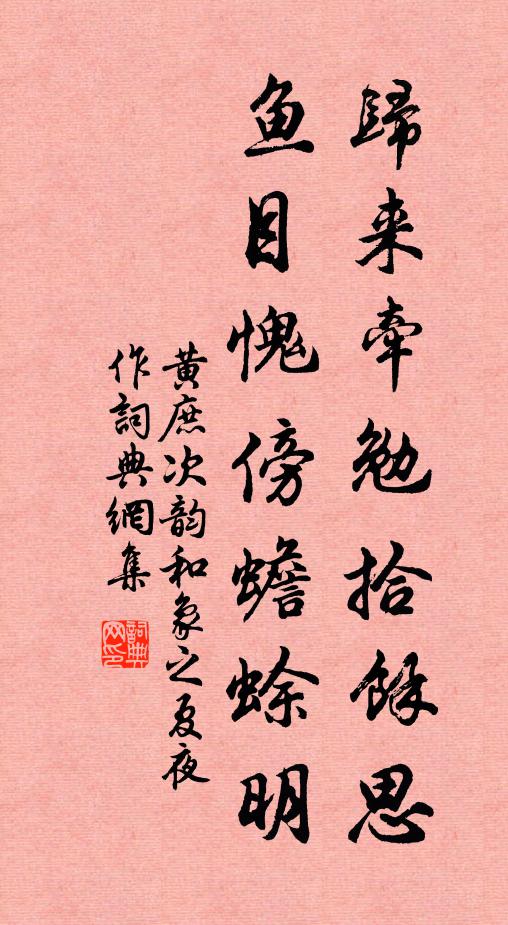 歸来牽勉拾餘思
鱼目愧傍蟾蜍明
黄庶次韵和象之夏夜
作詞典網集
詞典网印